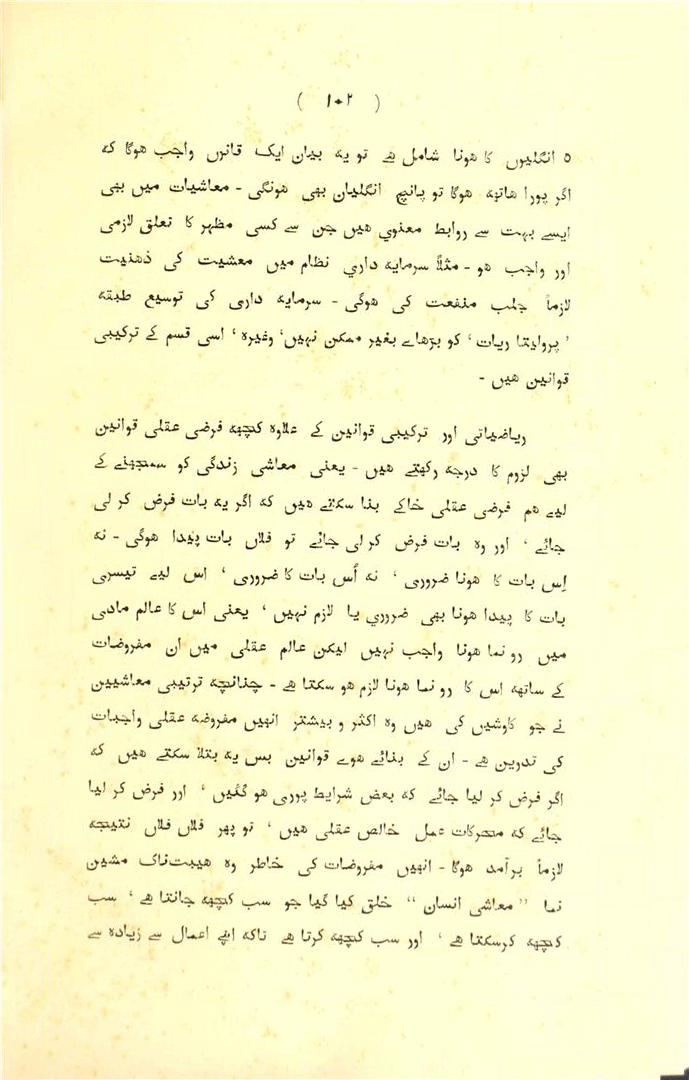 ( ۱۰۲ )
۵ انگلیوں کا ھونا شامل ھے تو یہ بیان ایک قانون واجب ھوگا کہ
اگر پورا ھاتھہ ھوگا تو پانچ انگلیاں بھی ھونگی - معاشیات میں بھی
ایسے بہت سے روابط معنوي ھیں جن سے کسی مظہر کا تعلق لازمی
اور واجب ھو - مثلاً سرمایہ داري نظام میں معشیت کی ذھنیت
لازماً جلب منفعت کی ھوگی - سرمایہ داری کی توسیع طبقہ
’پرولیتا ریات‘ کو بڑھاے بغیر ممکن نہیں‘ وغیرہ ‘ اسی قسم کے ترکیبی
قوانین ھیں -
ریاضیاتی اور ترکیبی قوانین کے علاوہ کچھہ فرضی عقلی قوانین
بھی لزوم کا درجہ رکھتے ھیں - یعنی معاشی زندگی کو سمجھنے کے
لیے ھم فرضی عقلی خاکے بنا سکتے ھیں کہ اگر یہ بات فرض کر لی
جائے ‘ اور وہ بات فرض کر لی جائے تو فلاں بات پیدا ھوگی - نہ
اِس بات کا ھونا ضروری ‘ نہ اُس بات کا ضروری ‘ اس لیے تیسری
بات کا پیدا ھونا بھی ضروري یا لازم نہیں ‘ یعنی اس کا عالم مادی
میں رو نما ھونا واجب نہیں لیکن عالم عقلی میں ان مفروضات
کے ساتھہ اس کا رو نما ھونا لازم ھو سکتا ھے - چنانچہ ترتیبی معاشیین
نے جو کاوشیں کی ھیں وہ اکثر و بیشتر انہیں مفروضہ عقلی واجبات
کی تدوین ھے - ان کے بنائے ھوے قوانین بس یہ بتلا سکتے ھیں کہ
اگر فرض کر لیا جائے کہ بعض شرایط پوری ھو گئیں ‘ اور فرض کر لیا
جائے کہ محرکات عمل خالص عقلی ھیں ‘ تو پھر فلاں فلاں نتیجہ
لازماً برآمد ھوگا - انہیں مفروضات کی خاطر وہ ھیبت‌ناک مشین
نما ”معاشی انسان“ خلق کیا گیا جو سب کچھہ جانتا ھے ‘ سب
کچھہ کرسکتا ھے ‘ اور سب کچھہ کرتا ھے تاکہ اپنے اعمال سے زیادہ سے